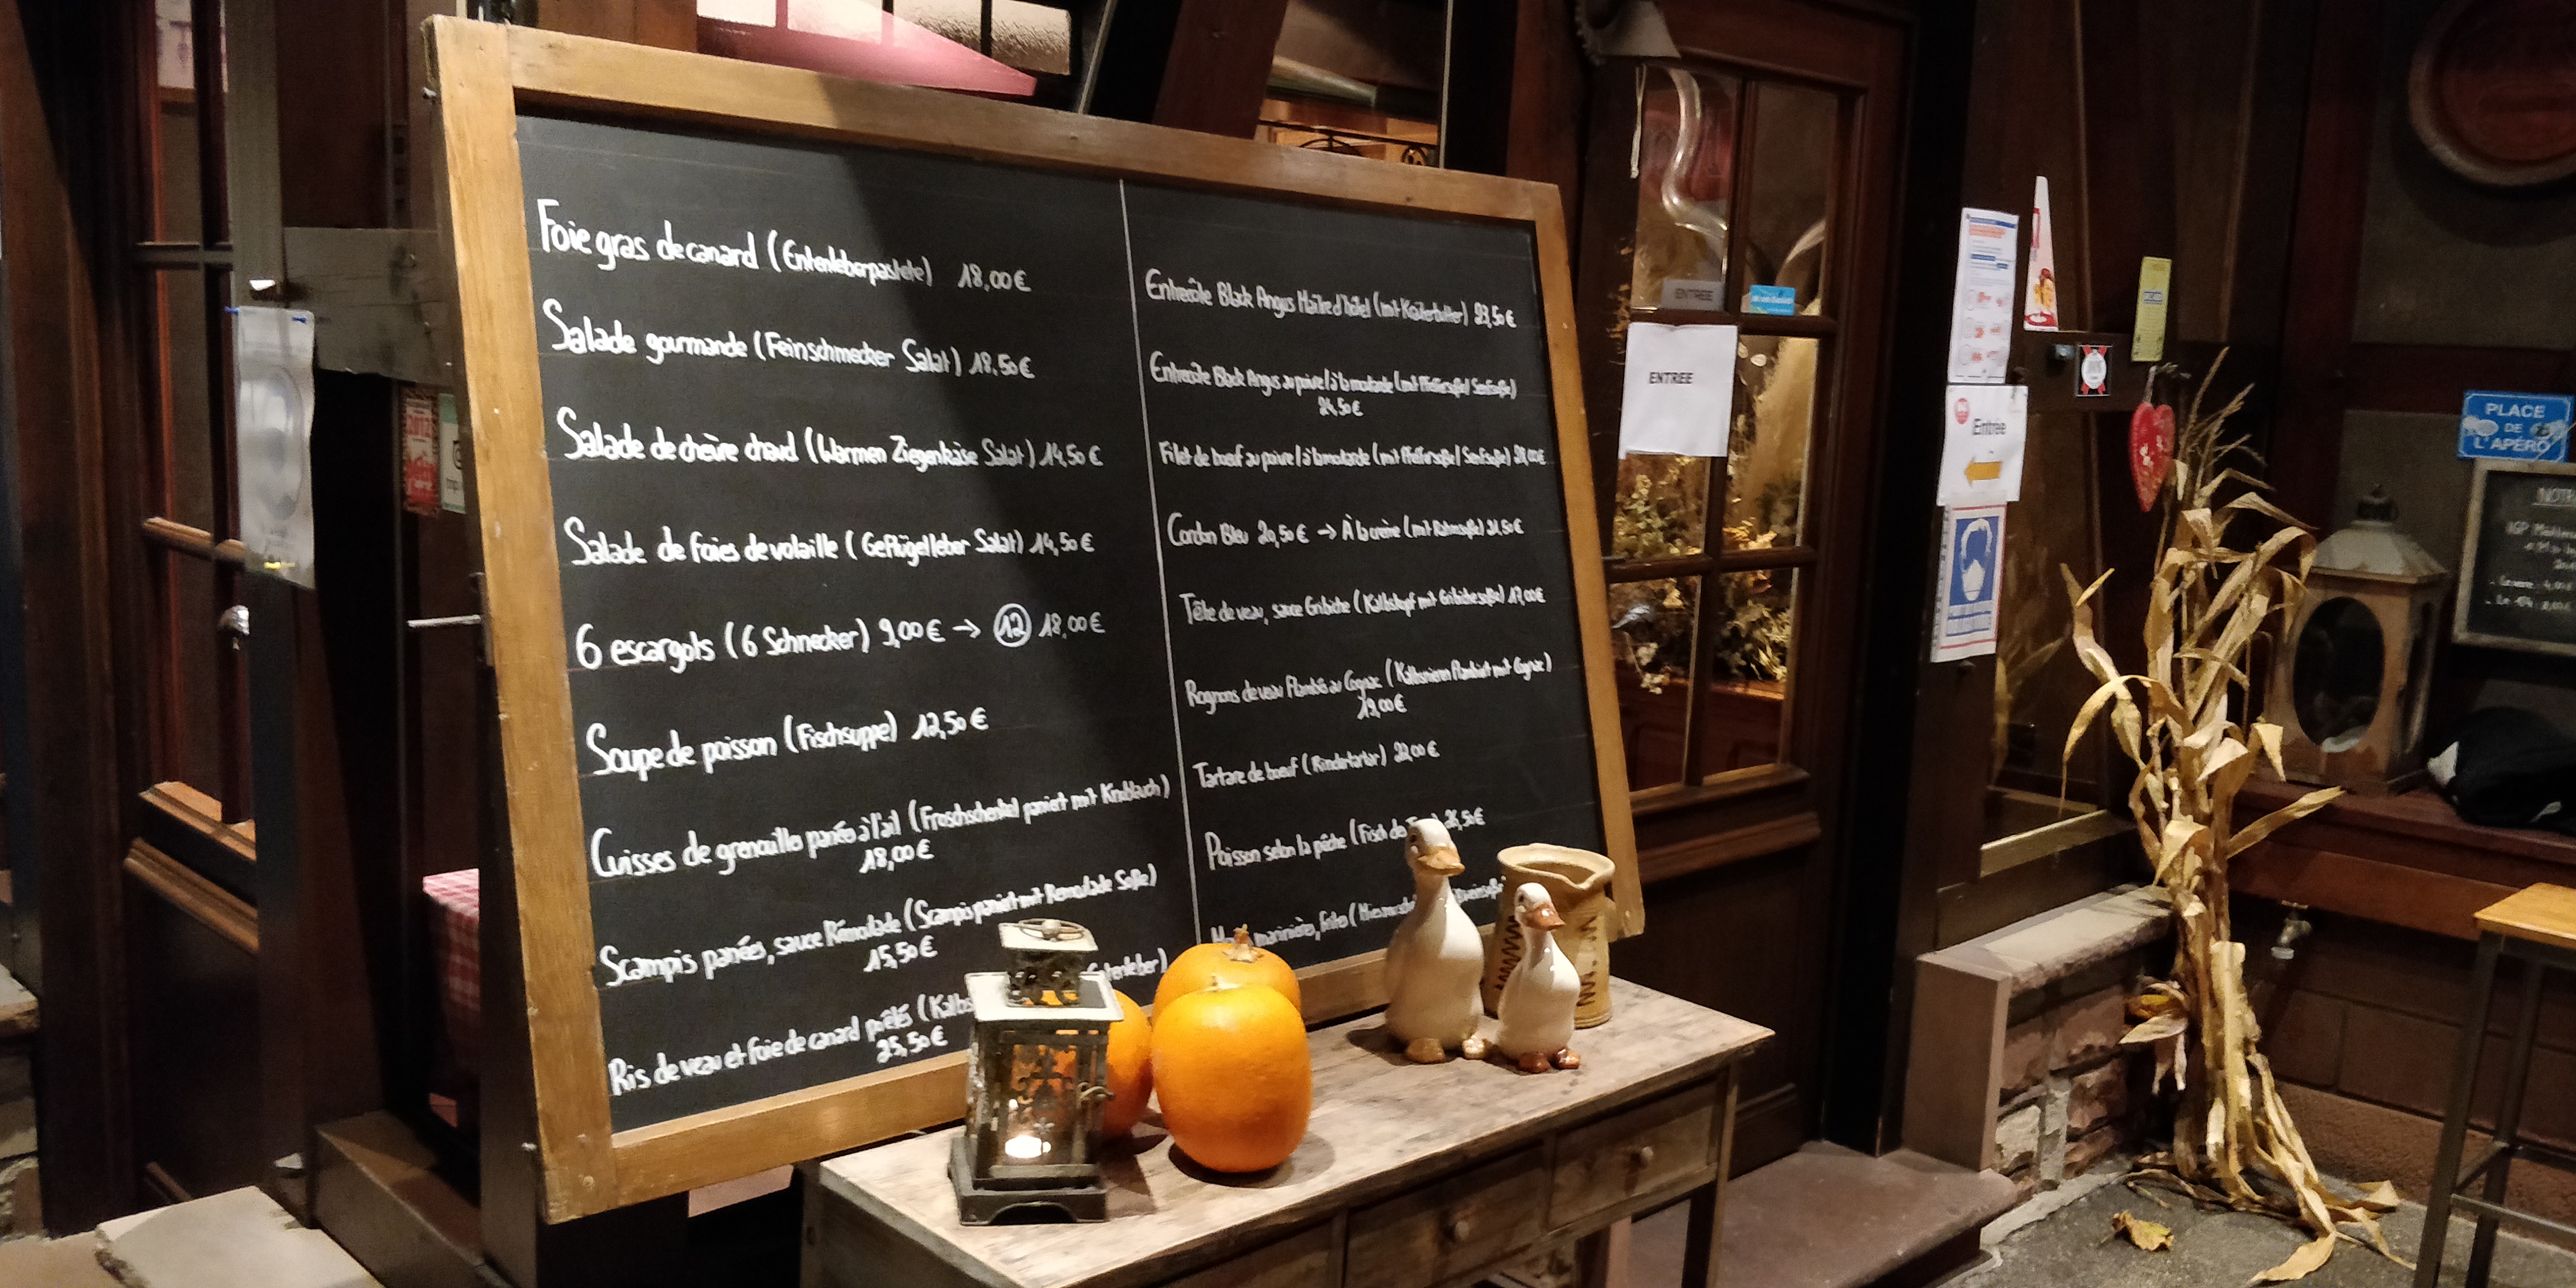 Foie gras de canard (Entenleberpastete) 18,00€
Salade gourmande (Feinschmecker Salat) 18,50€
Salade de chèvre chaud (Warmen Ziegenkäse Salat) 14,50€
Salade de foies de volaille (Geflügelleber Salat) 14,50€
6 escargots (6 Schnecker) 9,00€ → 12 18,00€
Soupe de poisson (Fischsuppe) 12,50€
Cuisses de grenouille panées à l'ail (Froschschenkel paniert mit Knoblauch)
18,00€
Scampis panées, sauce Rémoulade (Scampis paniert mit Remoulade Soße)
15,50€
Ris de veau et foie de canard poêlés (Kalbs Entenleber)
25,50€
Entrecôte Black Angus Maître d'hôtel (mit Kräuterbutter) 23,50€
Entrecôte Black Angus au poivre/à la moutarde (mit Pfeffersoße/Senfsoße)
24,50€
Filet de boeuf au poivre/à la moutarde (mit Pfeffersoße/Senfsoße)
Cordon Bleu 20,50€ → À la crème (mit Rahmsoße) 21,50€
Tête de veau, sauce Gribiche (Kalbskopf mit Gribichesoße) 17,00€
Rognons de veau Flambés au Cognac (Kalbsnieren Flambiert mit Cognac)
19,00€
Tartare de boeuf (Rindertartar) 22,00€
Poisson selon la pêche (Fisch des 26,50€
marinières, frites
ENTREE
ENTREE
Entrée
PLACE
DE
L'APÉRO
2012